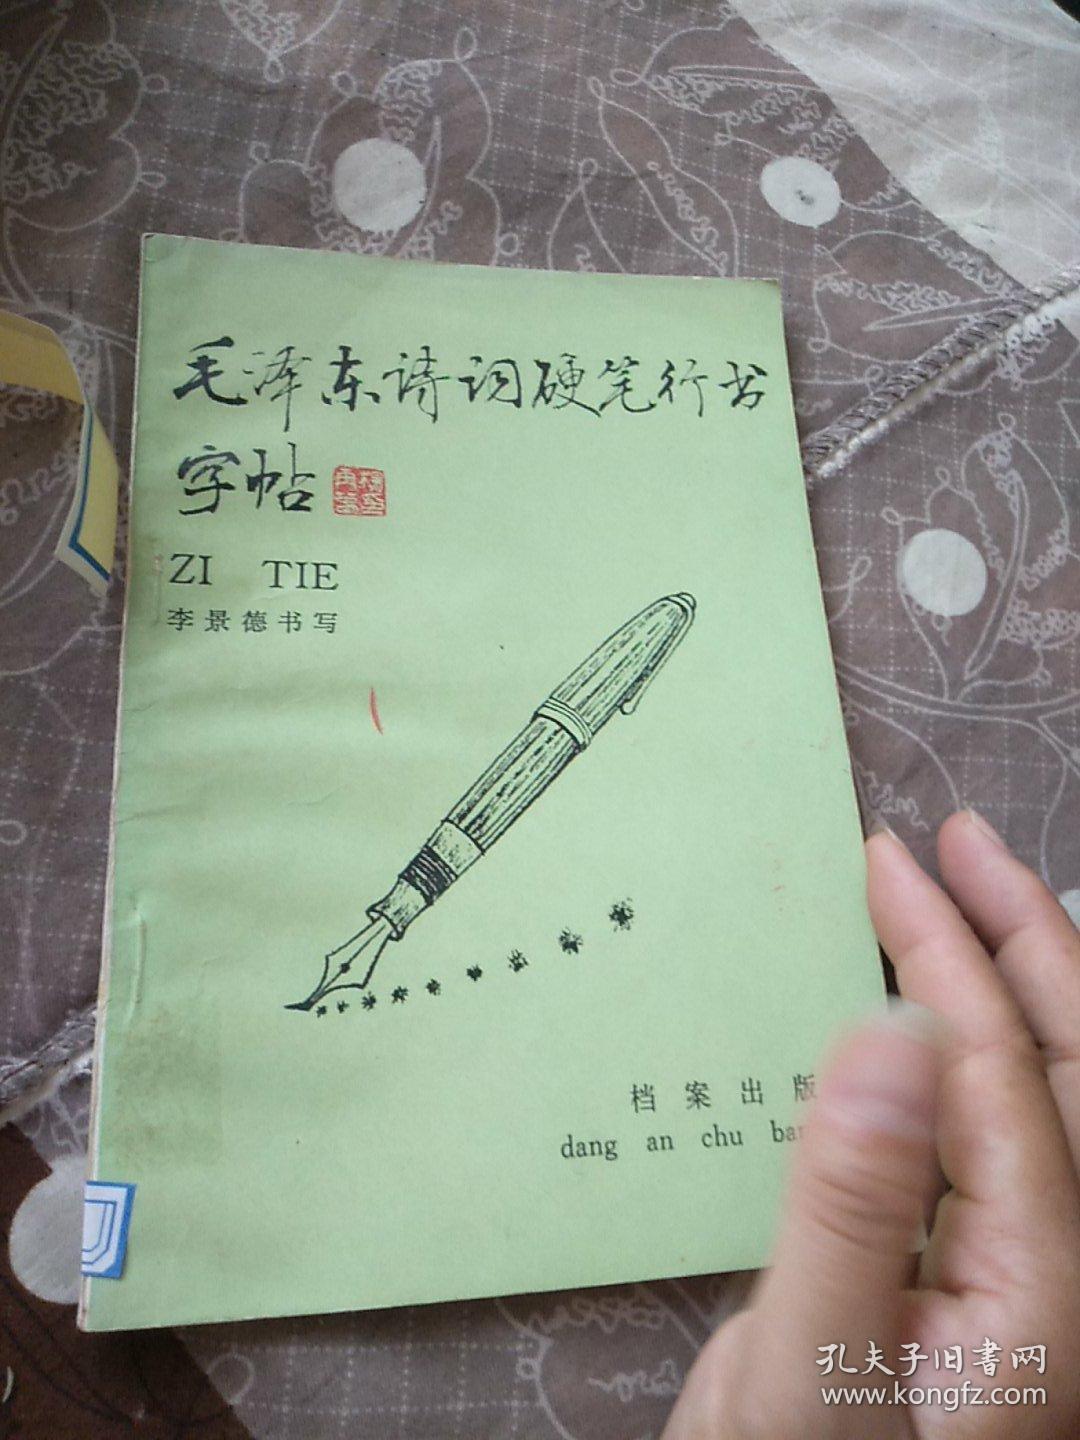 毛泽东诗词硬笔行书
字帖
ZI TIE
李景德书写
档案出版
dang an chu ba
孔夫子旧書网
www.kongfz.com